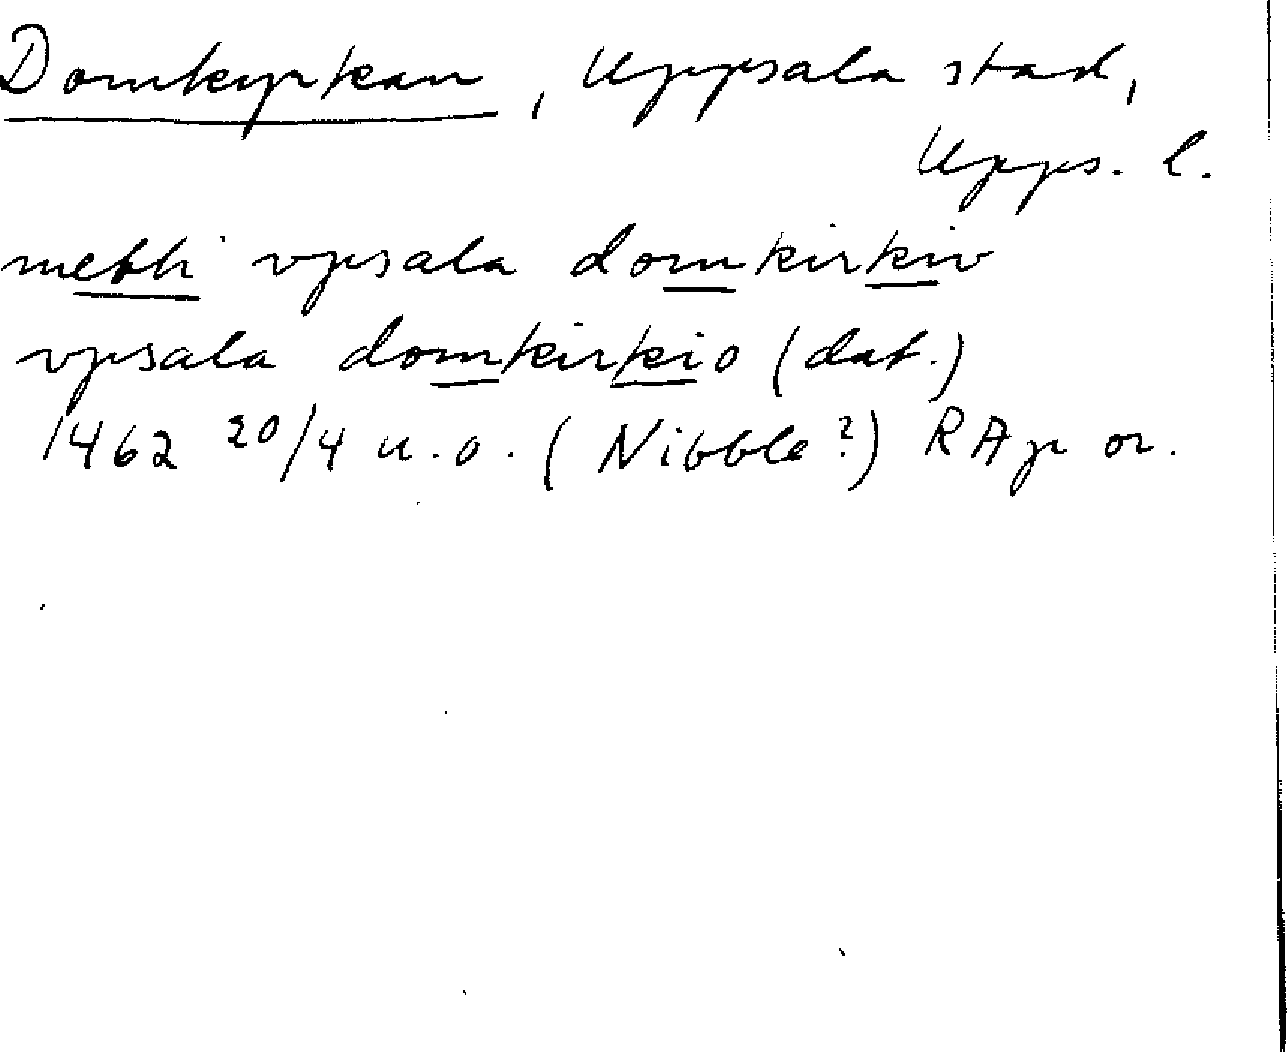 Domkyrkan, Uppsala stad,
Upps. l.
methi vpsala domkirkiv
vpsala domkirkio (dat.)
1462 20/4 u.o. (Nibble?) RAp or.